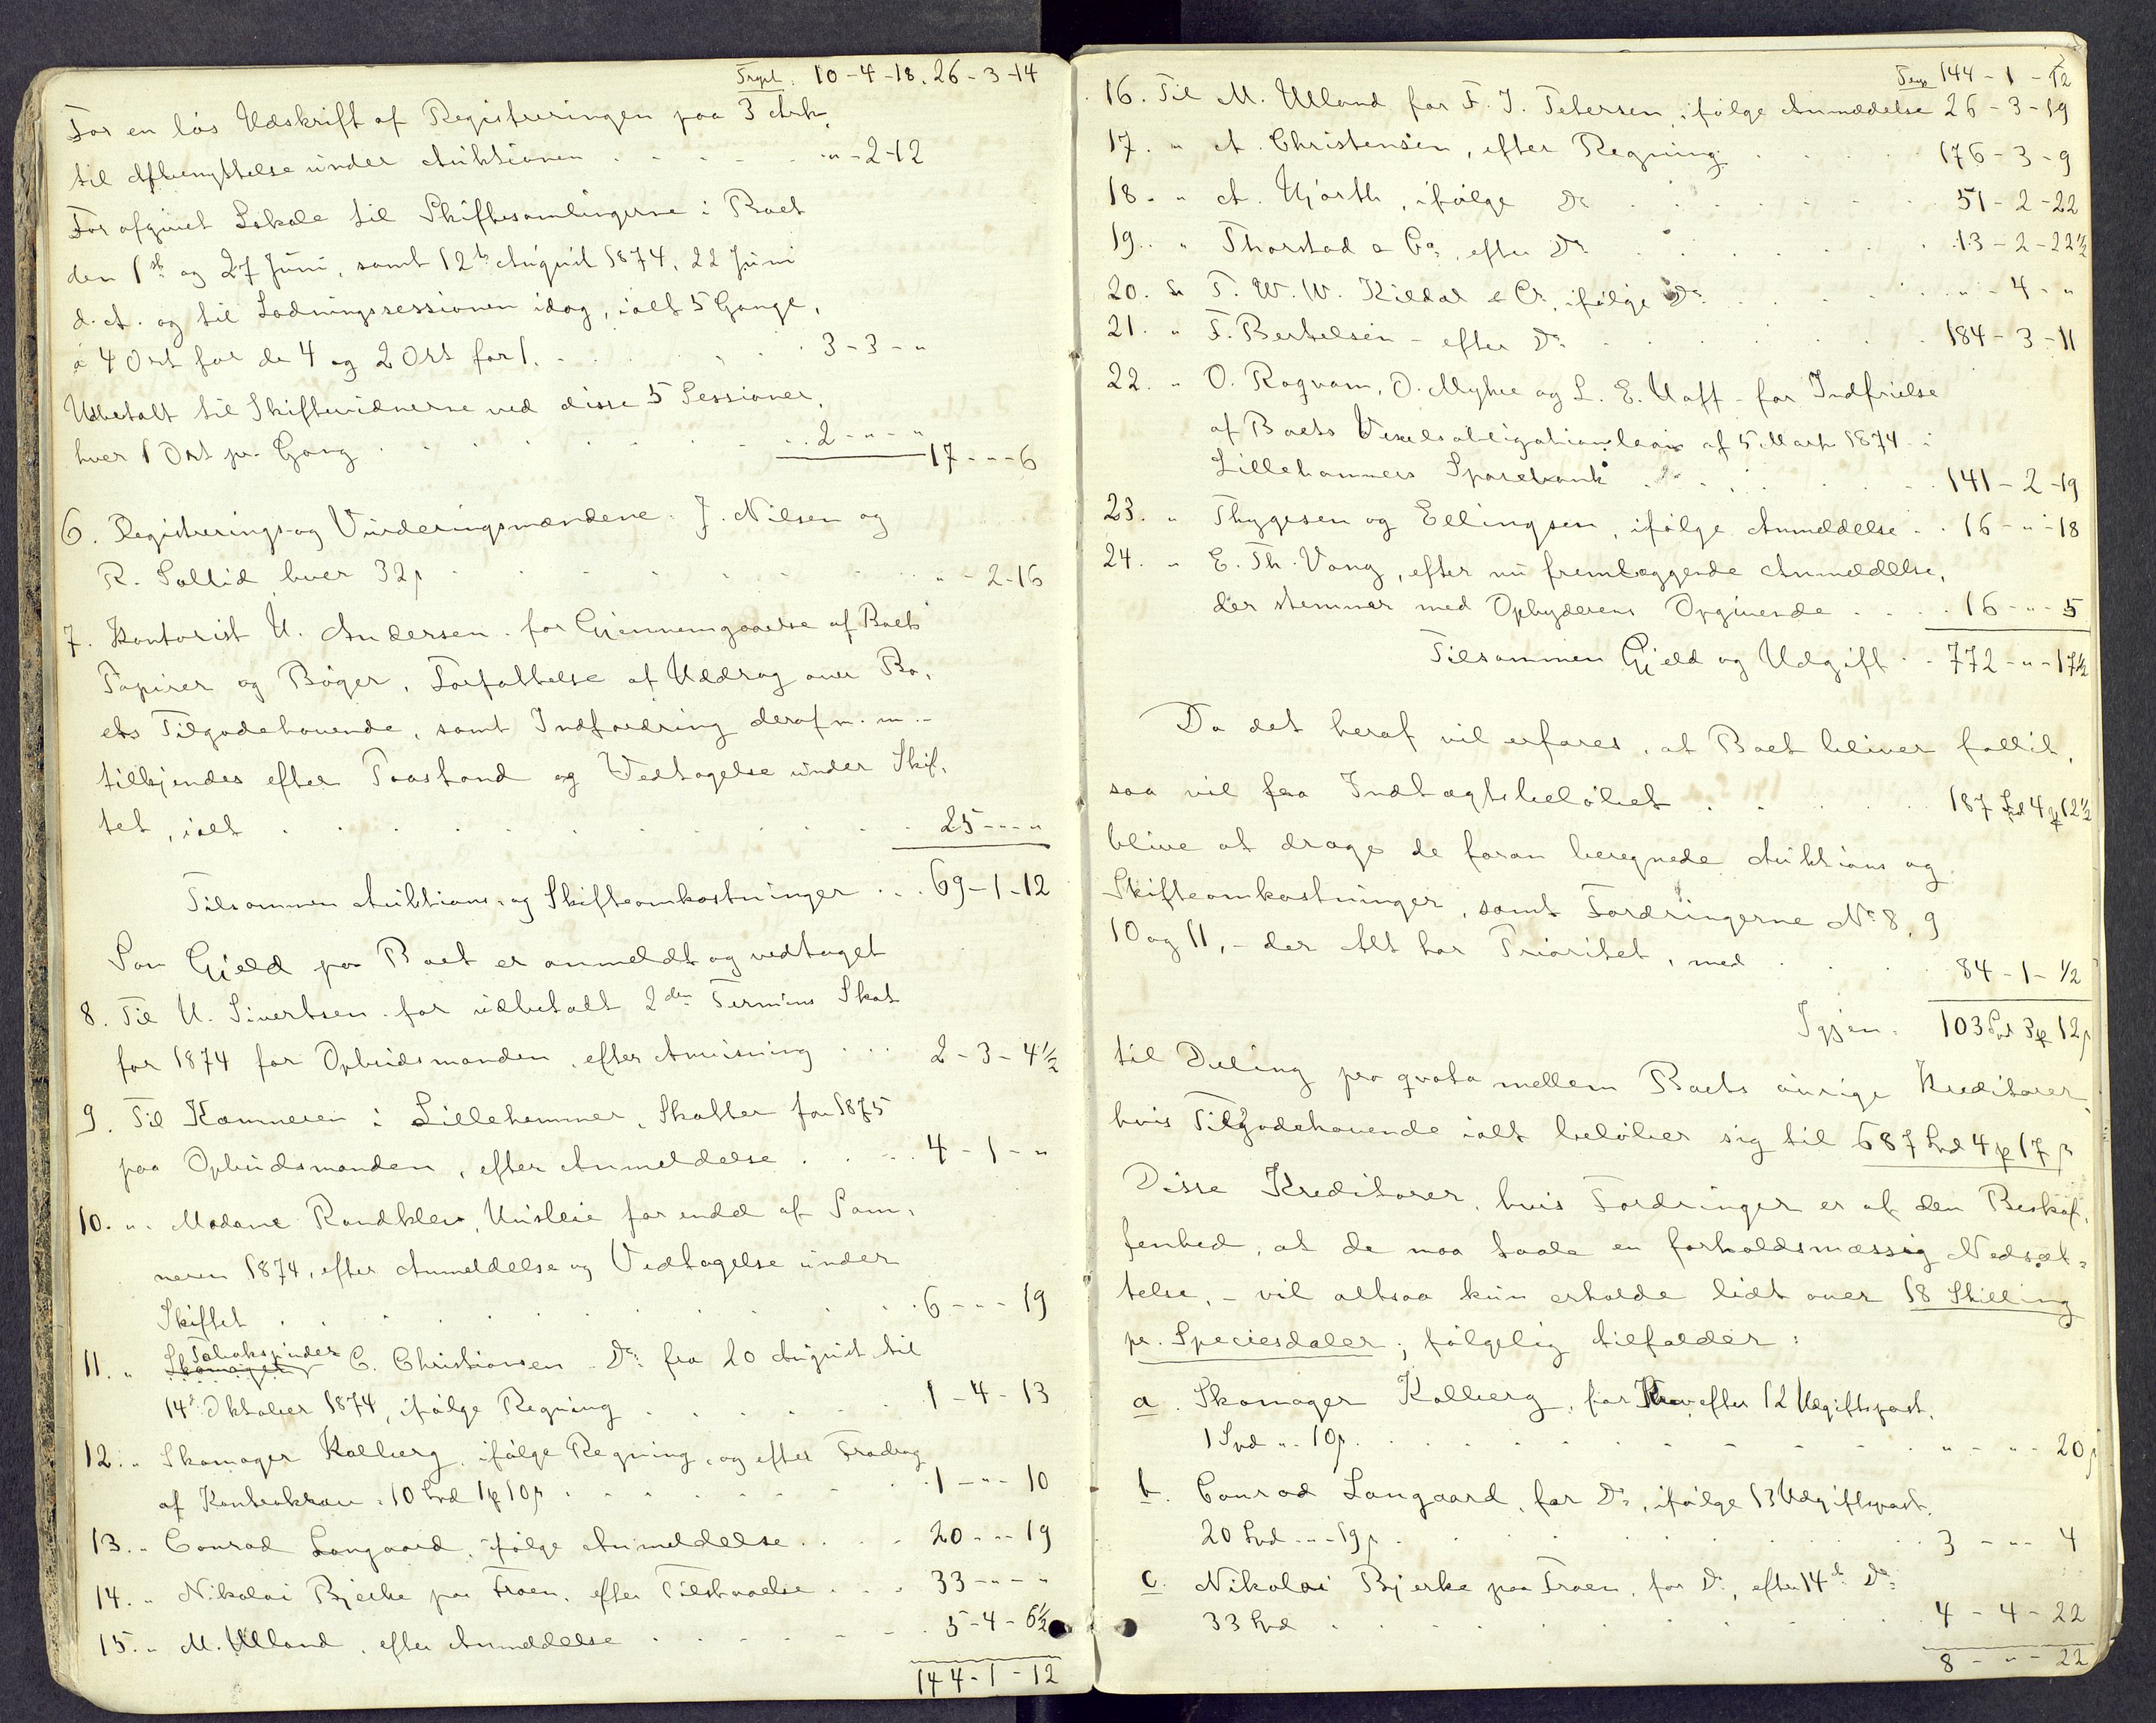 Trspt. 10-4-18. 26-3-14
For en løs Udskrift af Registreringen paa 3 Ark,
til Afbenyttelse under Auktionen . . . . . " - 2 - 12
For afgivet Lokale til Skiftesamlingerne i Boet
den 1ste og 27 Juni, samt 12te August 1874, 22 Juni
d. A. og til Lodningssessionen idag, ialt 5 Gange,
a 4 Ort for de 4 og 2 Ort for 1. . . . . . 3 - 3 - "
Udbetalt til Skiftevidnerne ved disse 5 Sessioner,
hver 1 Ort pr. Gang . . . . . . 2 - " - " 17 - " - 6
6. Registrerings- og Vurderingsmændene J. Nilsen og
R. Sollid hver 32 s . . . . . . " - 2 - 16
7. Kontorist U. Andersen for Gjennemgaaelse af Boets
Papirer og Bøger, Forfattelse af Uddrag over Bo-
ets Tilgodehavende, samt Indfordring deraf m. m. -
tilkjendes efter Paastand og Vedtagelse under Skif-
tet, ialt . . . . . . 25 - " - "
Tilsammen Auktions- og Skifteomkostninger . . . 69 - 1 - 12
Som Gjæld paa Boet er anmeldt og vedtaget
8. Til U. Sivertsen for udbetalt 2den Termins Skat
for 1874 for Opbudsmanden, efter Anvisning . . . 2 - 3 - 4½
9. Til Kæmneren i Lillehammer, Skatter for 1875
paa Opbudsmanden, efter Anmeldelse . . . . 4 - 1 - "
10. " Madame Randklev, Husleie for endel af Som-
meren 1874, efter Anmeldelse og Vedtagelse under
Skiftet . . . . . . 6 - " - 19
11. " Skomager Tobakspinder C. Christiansen Do: fra 20 August til
14de Oktober 1874, ifølge Regning . . . . . 1 - 4 - 13
12. " Skomager Kolberg, ifølge Regning, og efter Fradrag
af Kontrakrav: 10 Spd 1 ₰ 10 s . . . . . 1 - " - 10
13. " Conrad Langaard, ifølge Anmeldelse . . . . 20 - " - 19
14. " Nikolai Bjerke paa Froen, efter Tilstaaelse . . . 33 - " - "
15. " M. Ulland, efter Anmeldelse . . . . . . 5 - 4 - 6½
144 - 1 - 12
Trsp 144 - 1 - 12
16. Til M. Ulland for F. J. Petersen, ifølge Anmeldelse 26 - 3 - 19
17. " A. Christensen, efter Regning . . . . 176 - 3 - 9
18. " A. Hjorth, ifølge Do . . . . . . 51 - 2 - 22
19. " Thorstad & Co, efter Do . . . . . . 13 - 2 - 22½
20. " T. W. W. Kildal & Co, ifølge Do . . . . . " - 4 - "
21. " F. Bertelsen - efter Do . . . . . . 184 - 3 - 11
22. " O. Rogvam, O. Myhre og L. E. Hoff - for Indfrielse
af Boets Vexelobligationslaan af 5 Marts 1874 i
Lillehammers Sparebank . . . . . . 141 - 2 - 19
23. " Thygesen og Ellingsen, ifølge Anmeldelse . . 16 - " - 18
24. " E. Th. Vang, efter nu fremlæggende Anmeldelse,
der stemmer med Opbyderens Opgivende . . . . 16 - " - 5
Tilsammen Gjæld og Udgift . . 772 - " - 17½
Da det heraf vil erfares, at Boet bliver fallit,
saa vil fra Indtægtsbeløbet . . . . . 187 Spd 4 ₰ 12½
blive at drage de foran beregnede Auktions og
Skifteomkostninger, samt Fordringerne No 8, 9
10 og 11, - der Alt har Prioritet, med . . . . 84 - 1 - ½
Igjen. 103 Spd 3 ₰ 12 s
til Deling pro qvota mellem Boets øvrige Kreditorer,
hvis Tilgodehavende ialt beløber sig til 687 Spd 4 ₰ 17 s
Disse Kreditorer, hvis Fordringer er af den Beskaf-
fenhed, at de maa taale en forholdsmæssig Nedsæt-
telse, - vil altsaa kun erholde lidt over 18 Skilling
pr. Speciesdaler; følgelig tilfalder:
a. Skomager Kolberg, for Krav efter 12 Udgiftspost,
1 Spd " 10 s. . . . . . . " - " - 20 s
b. Conrad Langaard, for Do, ifølge 13 Udgiftspost,
20 Spd " - 19 s . . . . . . 3 - " - 4
c. Nikolai Bjerke paa Froen, for Do, efter 14de Do:
33 Spd . . . . . . 4 - 4 - 22
8 - " - 22